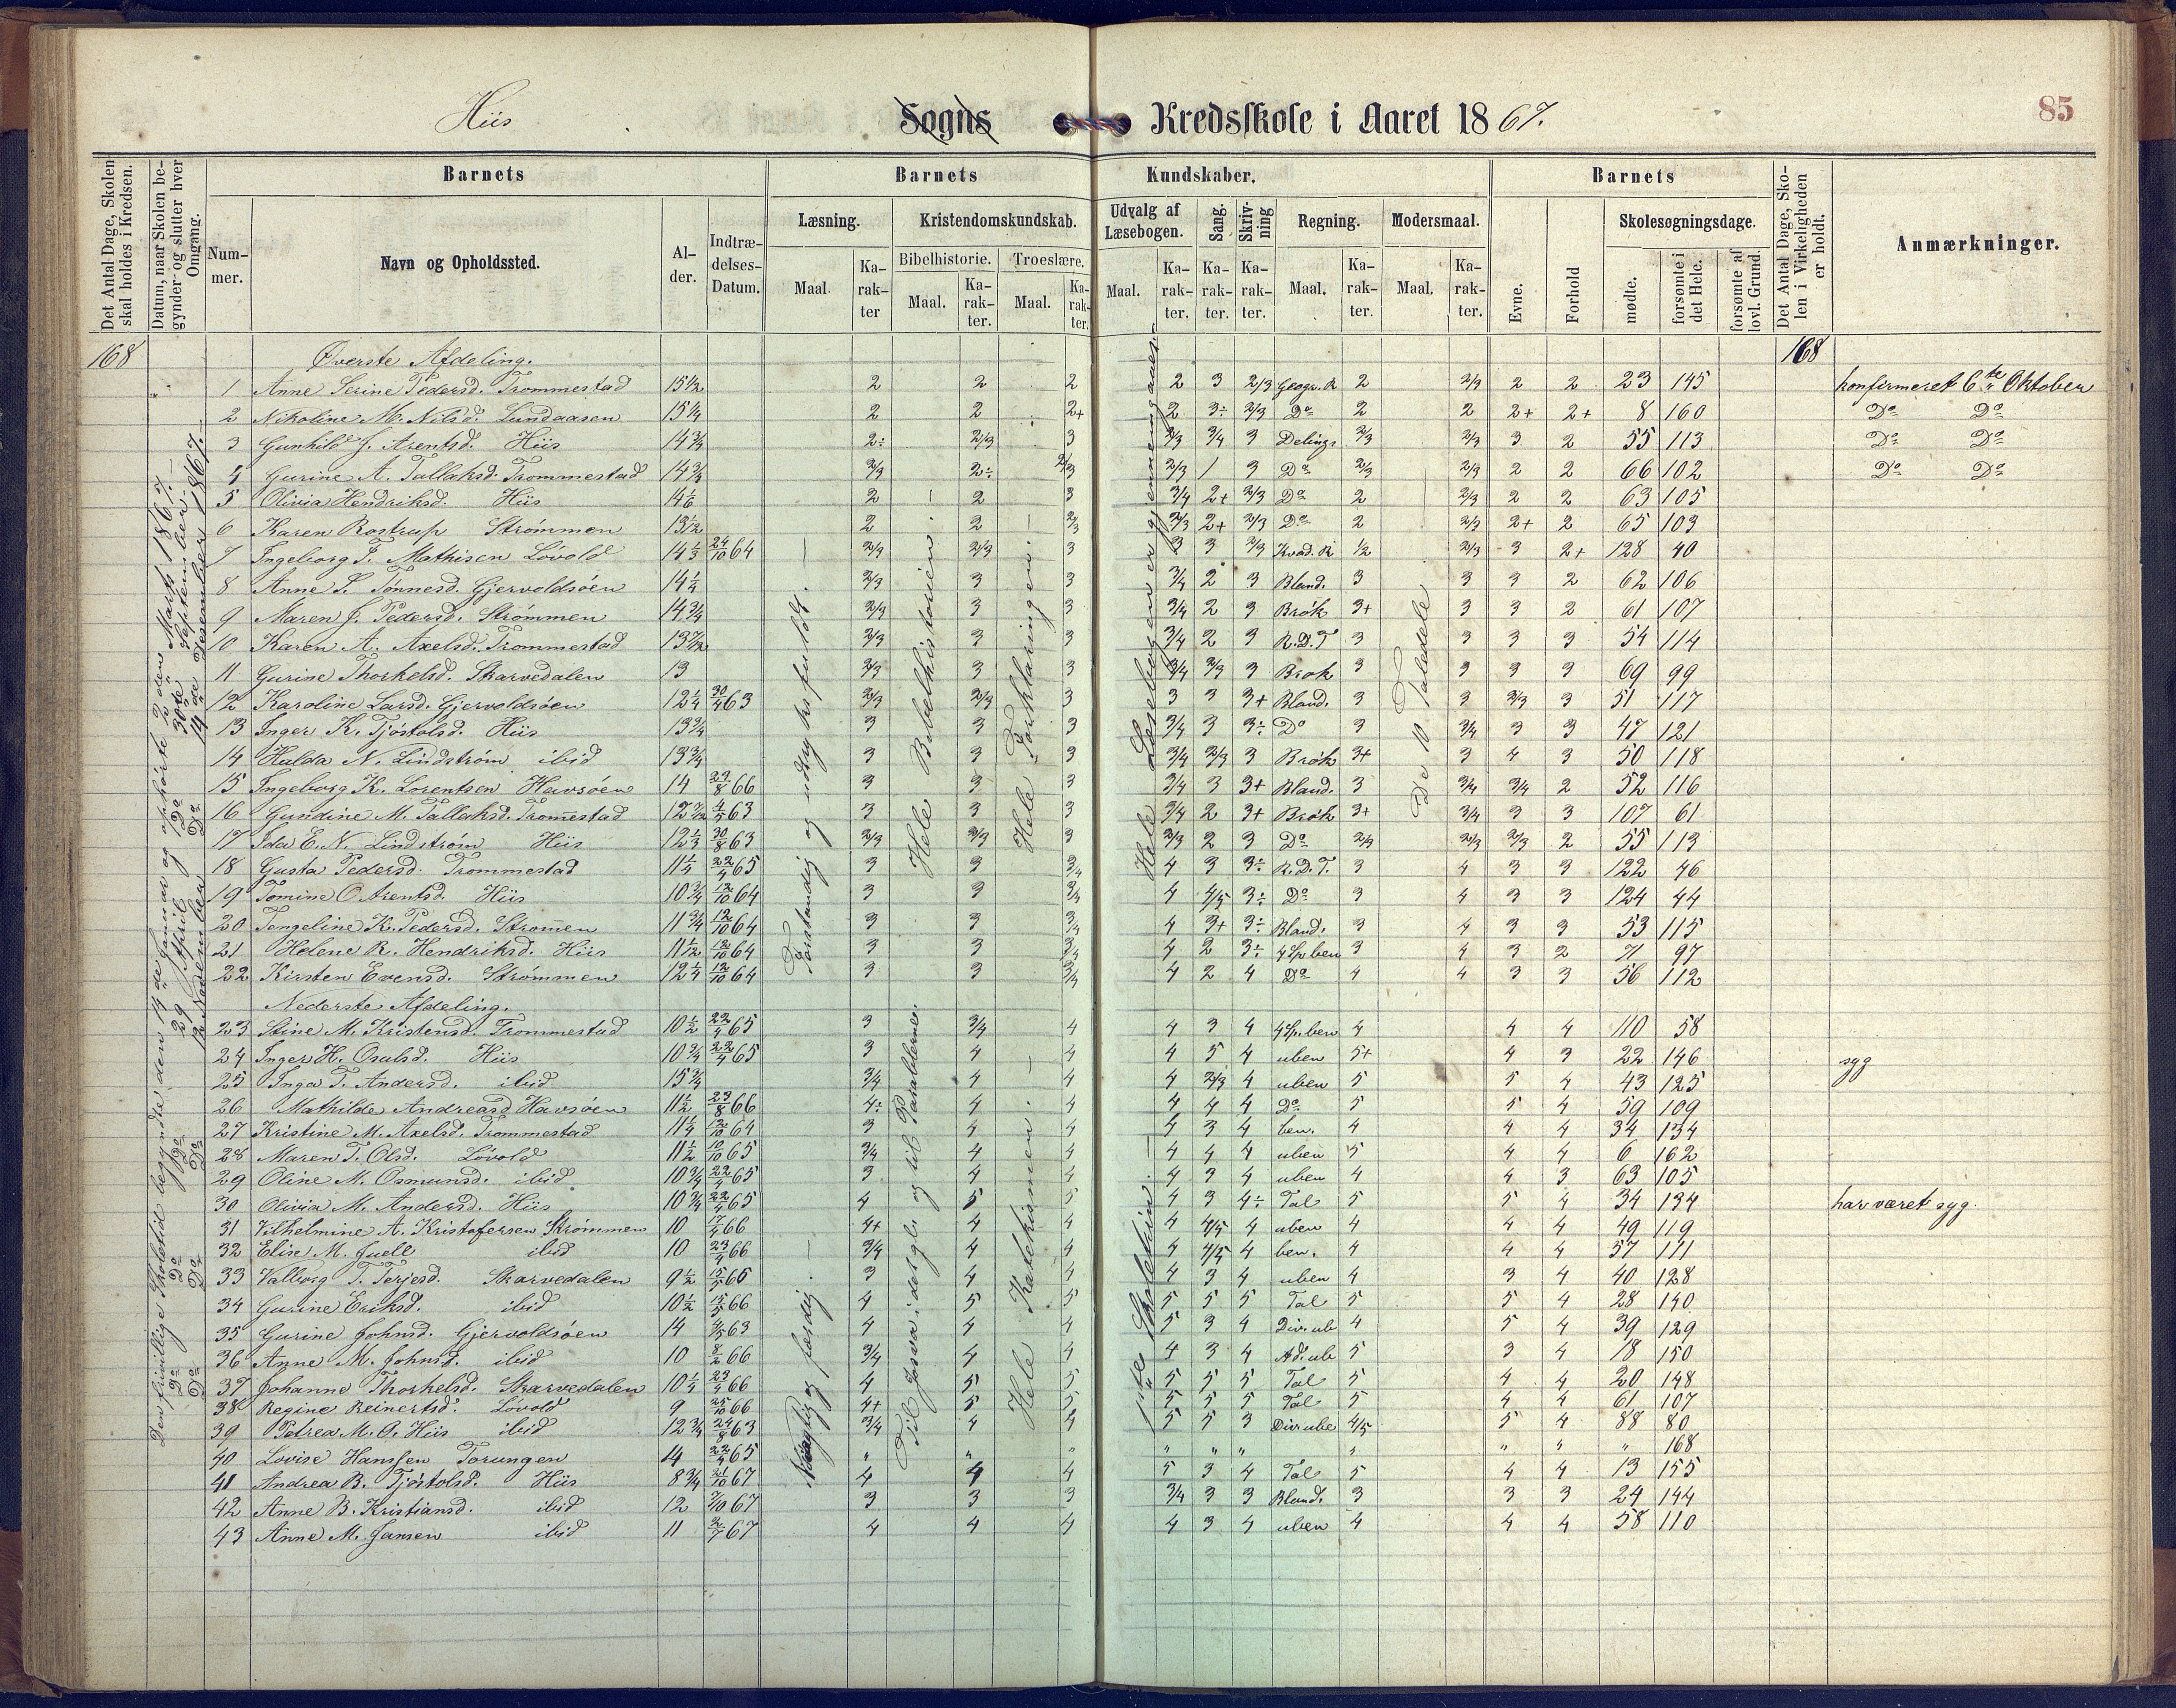 Hiis Sogns Kredsskole i Aaret 1867. 85
Det Antal Dage, Skolen skal holdes i Kredsen.
Datum, naar Skolen begynder og slutter hver Omgang.
Barnets
Nummer.
Navn og Opholdssted.
Alder.
Indtrædelses-Datum.
Barnets Kundskaber.
Læsning.
Maal. Karakter
Kristendomskundskab.
Bibelhistorie. Troeslære.
Maal. Karakter. Maal. Karakter.
Udvalg af Læsebogen.
Maal. Karakter.
Sang. Karakter.
Skrivning Karakter.
Regning.
Maal. Karakter.
Modersmaal.
Maal. Karakter.
Barnets
Evne. Forhold
Skolesøgningsdage.
mødte. forsømte i det Hele. forsømte af lovl. Grund.
Det Antal Dage, Skolen i Virkeligheden er holdt.
Anmærkninger.
168 Øverste Afdeling. 168
1 Anne Serine Pedersd. Trommestad 15 1/2 2 2 2 2 3 2/3 Geogr. R 2 2/3 2 2 23 145 konfirmeret 6te Oktober
2 Nikoline M. Nilsd. Lundaasen 15 1/4 2 2 2+ 2 3÷ 2/3 Do 2 2 2+ 2+ 8 160 Do Do
3 Gunhild J. Arentsd. Hiis 14 3/4 2÷ 2/3 3 2/3 3/4 3 Delings 2/3 2/3 3 2 55 113 Do Do
4 Gurine A. Tallaksd. Trommestad 14 3/4 2/3 2÷ 2/3 2/3 1 3 Do 2/3 2/3 2 2 66 102 Do Do
5 Olivia Hendriksd. Hiis 14 1/6 2 2 3 3/4 2+ 2/3 Do 2 2/3 2 2 63 105
6 Karen Rostrup Strømmen 13 1/2 2 2 2/3 2/3 2+ 2/3 Do 2 2/3 2+ 2 65 103
7 Ingeborg T. Mathisen Løvold 14 1/3 24/10 64 2/3 2/3 3 3 3 2/3 Kvad. R 1/2 2/3 3 2+ 128 40
8 Anne S. Tønnesd. Gjervoldsøen 14 1/4 2/3 3 3 3/4 2 3 Bland. 3 3 3 2 62 106
9 Maren J. Pedersd. Strømmen 14 3/4 2/3 3 3 3/4 2 3 Brøk 3+ 3 3 2 61 107
10 Karen A. Axelsd. Trommestad 13 7/12 2/3 3 3 3/4 2 3 R.D.T 3 3 3 3 54 114
11 Gurine Thorkelsd. Skarvedalen 13 2/3 3 3 3/4 2/3 3 Brøk 3 3 3 3 69 99
12 Karoline Larsd. Gjervoldsøen 12 1/4 30/4 63 2/3 2/3 3 3 3 3+ Bland. 3 3 2/3 3 51 117
13 Inger K. Tjøstolsd. Hiis 13 3/4 3 3 3 3/4 3 3÷ Do 3 3/4 3 3 47 121
14 Hulda N. Lindstrøm ibid 13 3/4 3 3 3 3/4 2/3 3 Brøk 3+ 3 4 3 50 118
15 Ingeborg K. Lorentsen Havsøen 14 22/8 66 3 3 3 3/4 3 3+ Bland. 3 3/4 3/4 2 52 116
16 Gundine M. Tallaksd. Tromestad 12 7/12 4/5 63 3 3 3 3/4 2 3+ Brøk 3+ 3/4 3 3 107 61
17 Ida E. N. Lindstrøm Hiis 12 1/3 30/8 63 2/3 2/3 3 2/3 2 3 Do 2/3 2/3 2/3 2 55 113
18 Gusta Pedersd. Trommestad 11 1/4 22/4 65 3 3 3/4 4 3 3÷ R.D.T. 3 4 3 3 122 46
19 Tomine O Arentsd. Hiis 10 3/4 12/10 64 3 3 3/4 4 4/5 3÷ Do 3 4 3 3 124 44
20 Tengeline K. Pedersd. Strømen 11 3/4 12/10 64 3 3 3/4 4 3+ 3÷ Bland. 3 4 3 3 53 115
21 Helene R. Hendriksd. Hiis 11 1/2 12/10 64 3 3 3/4 4 2 3÷ 4 Sp ben 3 4 3 2 71 97
22 Kirsten Evensd. Strømmen 12 1/4 12/10 64 3 3 3/4 4 2 4 Do 4 4 3 3 56 112
Nederste Afdeling.
23 Stine M. Kristensd. Trommestad 10 1/2 22/4 65 3 3/4 4 4 3 4 4 Sp. ben 4 4 4 110 58
24 Inger H. Osulsd. Hiis 10 3/4 22/4 65 3 4 4 4 5 4 uben 5+ 4 3 22 146 syg
25 Inga T. Andersd. ibid 15 3/4 3/4 4 4 4 2/3 4 uben 5 5 4 43 125
26 Mathilde Andreasd Havsøen 11 1/2 23/8 66 4÷ 4 4 4 4 4 Do 5 5 4 59 109
27 Kristine M. Axelsd. Trommestad 11 1/4 12/10 64 3 4 4 4 3 4 ben. 4 4 4 34 134
28 Maren T. Olsd. Løvold 11 1/2 10/10 65 3/4 4 4 4 4 4 uben 5 4 4 6 162
29 Oline M. Osmunsd. ibid. 10 3/4 22/4 65 3 4 4 4 3 4 uben 4 4 3 63 105
30 Olivia M. Andersd. Hiis 10 3/4 22/4 65 4 5 5 4 3 4÷ Tal 5 5 4 34 134 har været syg.
31 Vilhelmine A. Kristofersen Strømmen 10 17/4 66 4+ 4 4 4 4/5 4 uben 4 4 4 49 119
32 Elise M. Juell ibid 10 23/4 66 3/4 4 4 4 4/5 4 ben. 4 4 4 57 111
33 Valborg T. Terjesd. Skarvedalen 9 1/2 15/5 66 3 4 4 4 3 4 uben 4 3 4 40 128
34 Gurine Eriksd. ibid 10 1/2 15/5 66 4 5 5 5 5 5 Tal 5 5 4 28 140
35 Gurine Johnsd. Gjervoldsøen 14 4/5 63 4 4 4 5 3 4 Div. ub 4 5 4 39 129
36 Anne M. Johnsd. ibid 10 8/2 66 3/4 4 4 4 3 4 Ad. ub 5 3 4 18 150
37 Johanne Thorkelsd. Skarvedalen 10 1/4 23/4 66 4 5 5 5 5 5 Tal 5 4 4 20 148
38 Regine Reinertsd. Løvold 9 25/10 66 4+ 5 5 5 5 5 Tal 5 4 4 61 107
39 Petrea M. A. Hiis ibid 12 3/4 24/8 63 3/4 4 4 5 5 3 Div ube 4/5 5 4 88 80
40 Lovise Hanssen Torungen 14 22/4 65 " " " " " " " " " " 168
41 Andrea B. Tjøstolsd. Hiis 8 3/4 21/10 67 4 4 4 5 3 4 Tal 5 4 4 13 155
42 Anne B. Kristiansd. ibid 12 7/10 67 3 3 3 3/4 3 3 Bland. 3 3 3 24 144
43 Anne M. Jansen ibid 11 2/7 67 4 4 4 4 3 4 uben 4 4 4 58 110
Den frivillige Skoletid begyndte den 14de Januar og ophørte 2den Marts 1867.
Do Do 29 April Do 30te September
Do Do 12 November Do 14de Desember 1867.
Forstandig og udtryksfuldt.
Hele Bibelhistorien.
Hele Forklaringen.
Hele Læsebogen er gjennemgaaet
De 10 Taledele
Nøiagtig og færdig.
Til Josva i det gl. og til Parablerne.
Hele Katekismen.
1ste Skoletrin.